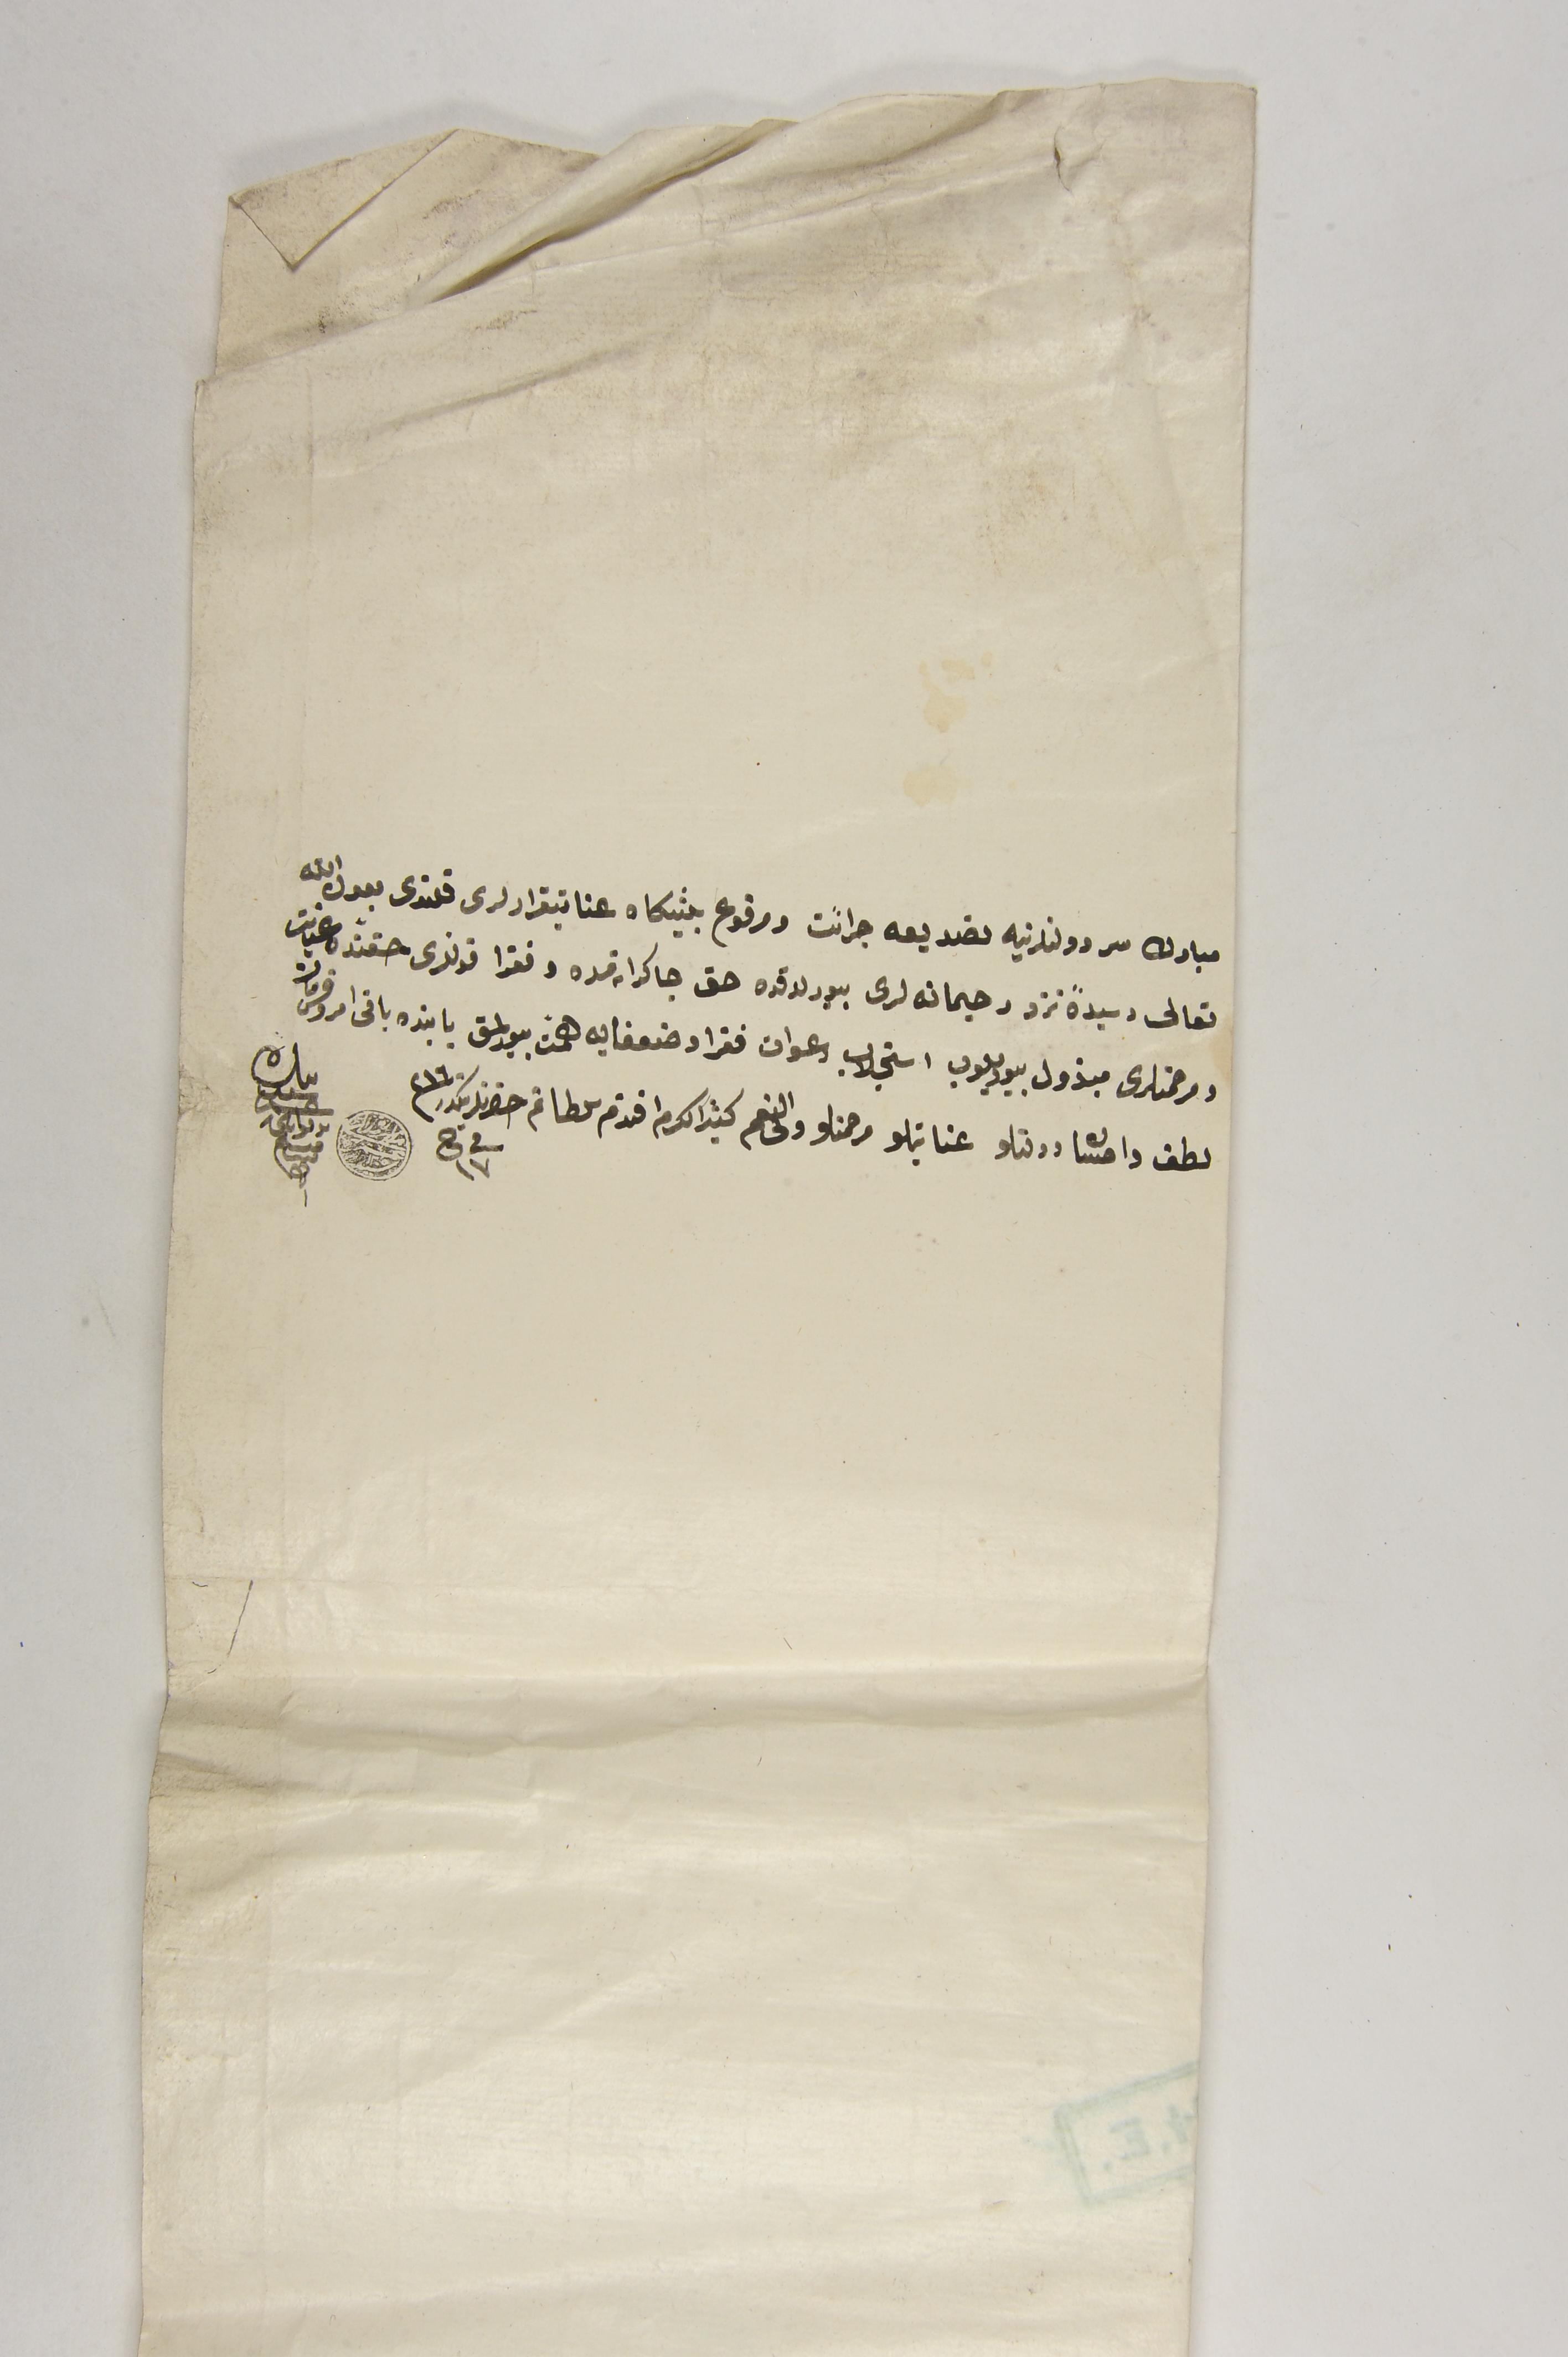 مبارك سر دولتلرينه تصديعه جرائت ومرفوع پيشكاه عنايتقرارلرى قلندى بعون الله
تعالى رسيدهٔ نزد رحيمانه لرى بيورلدقده حق چاكرانه مده و فقرا قوللرى حقنده عنايت
و مرحمتلرى مبذول بيوريلوب استجلاب دعوات فقرا و ضعفايه همت بيورلمق بابنده باقى امر و فرمان
لطف و احسان دولتلو عنايتلو مرحمتلو ولى النعم كثير الكرم افندم سلطانم حضرتلرينكدر
فى
١٧
بنده
H.E.